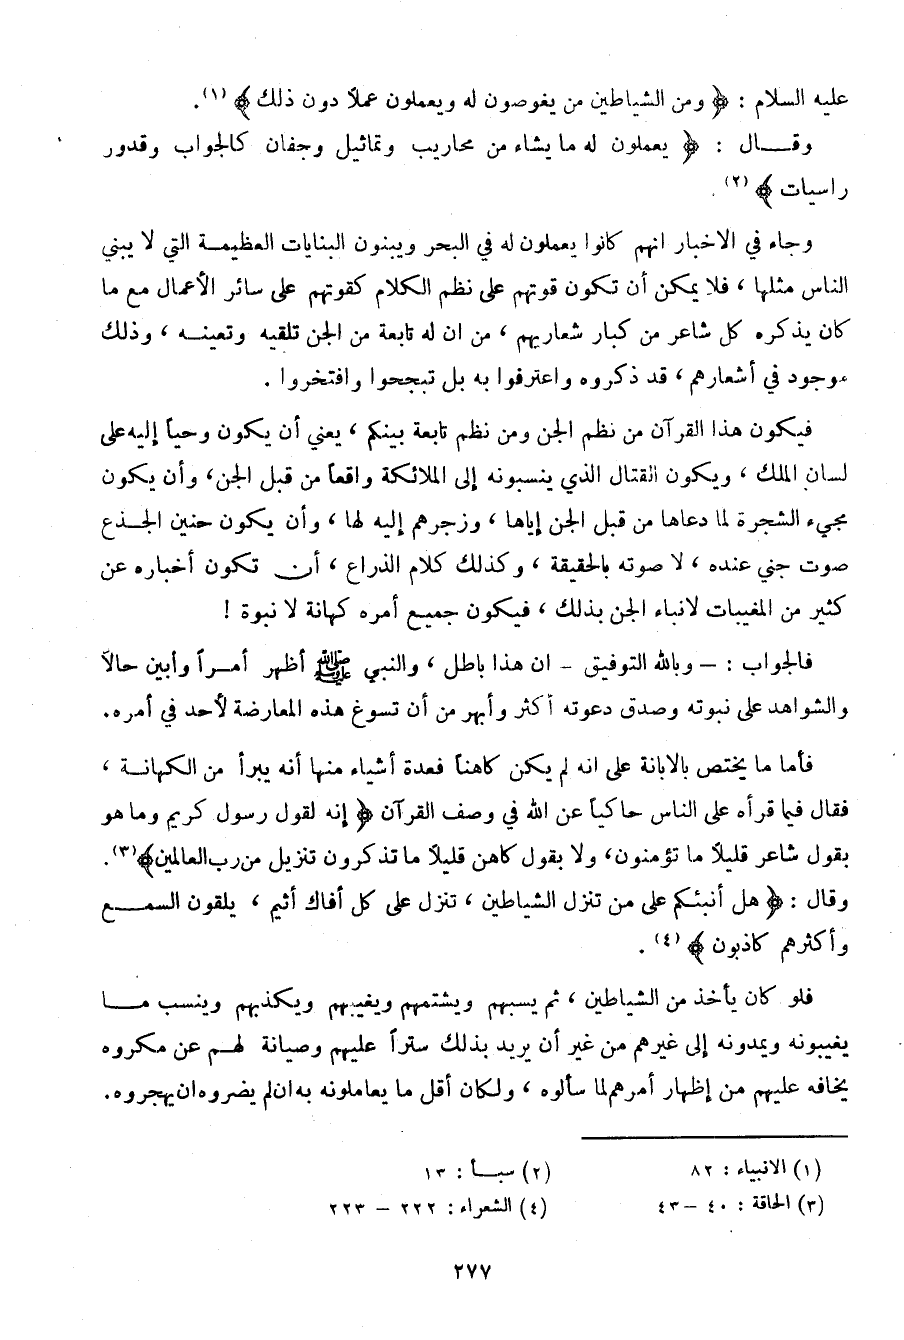 عليه السلام : ﴿ ومن الشياطين من يغوصون له ويعملون عملاً دون ذلك ﴾ (١).
وقـــال : ﴿ يعملون له ما يشاء من محاريب وتماثيل وجفان كالجواب وقدور
راسيات ﴾ (٢) .
وجاء في الاخبار انهم كانوا يعملون له في البحر ويبنون البنايات العظيمـة التي لا يبني
الناس مثلها ، فلا يمكن أن تكون قوتهم على نظم الكلام كقوتهم على سائر الأعمال مع ما
كان يذكره كل شاعر من كبار شعاريهم ، من ان له تابعة من الجن تلقيه وتعينـه ، وذلك
موجود في أشعارهم ، قد ذكروه واعترفوا به بل تبجحوا وافتخروا .
فيكون هذا القرآن من نظم الجن ومن نظم تابعة بينكم ، يعني أن يكون وحياً إليه على
لسان الملك ، ويكون القتال الذي ينسبونه إلى الملائكة واقعاً من قبل الجن، وأن يكون
مجيء الشجرة لما دعاها من قبل الجن إياها ، وزجرهم إليه لها ، وأن يكون حنين الجـذع
صوت جني عنده ، لا صوته بالحقيقة ، وكذلك كلام الذراع ، أن تكون أخباره عن
كثير من المغيبات لانباء الجن بذلك ، فيكون جميع أمره كهانة لا نبوة !
فالجواب : – وبالله التوفيق – ان هذا باطل ، والنبي ﷺ أظهر أمـراً وأبين حالاً
والشواهد على نبوته وصدق دعوته أكثر وأبهر من أن تسوغ هذه المعارضة لأحد في أمره.
فأما ما يختص بالابانة على انه لم يكن كاهناً فعدة أشياء منها أنه يبرأ من الكهانـة ،
فقال فيما قرأه على الناس حاكياً عن الله في وصف القرآن ﴿ إنه لقول رسول كريم وما هو
بقول شاعر قليلاً ما تؤمنون، ولا بقول كاهن قليلاً ما تذكرون تنزيل من رب العالمين﴾(٣).
وقال : ﴿ هل أنبئكم على من تنزل الشياطين ، تنزل على كل أفاك أثيم ، يلقون السمـــع
وأكثرهم كاذبون ﴾ (٤) .
فلو كان يأخذ من الشياطين ، ثم يسبهم ويشتمهم ويغيبهم ويكذبهم وينسب مـــا
يغيبونه ويمدونه إلى غيرهم من غير أن يريد بذلك ستراً عليهم وصيانة لهـم عن مكروه
يخافه عليهم من إظهار أمرهم لما سألوه ، ولكان أقل ما يعاملونه به ان لم يضروه ان يهجروه.
(١) الانبياء : ٨٢
(٢) سبـأ : ١٣
(٣) الحاقة : ٤٠ – ٤٣
(٤) الشعراء : ٢٢٢ – ٢٢٣
٢٧٧